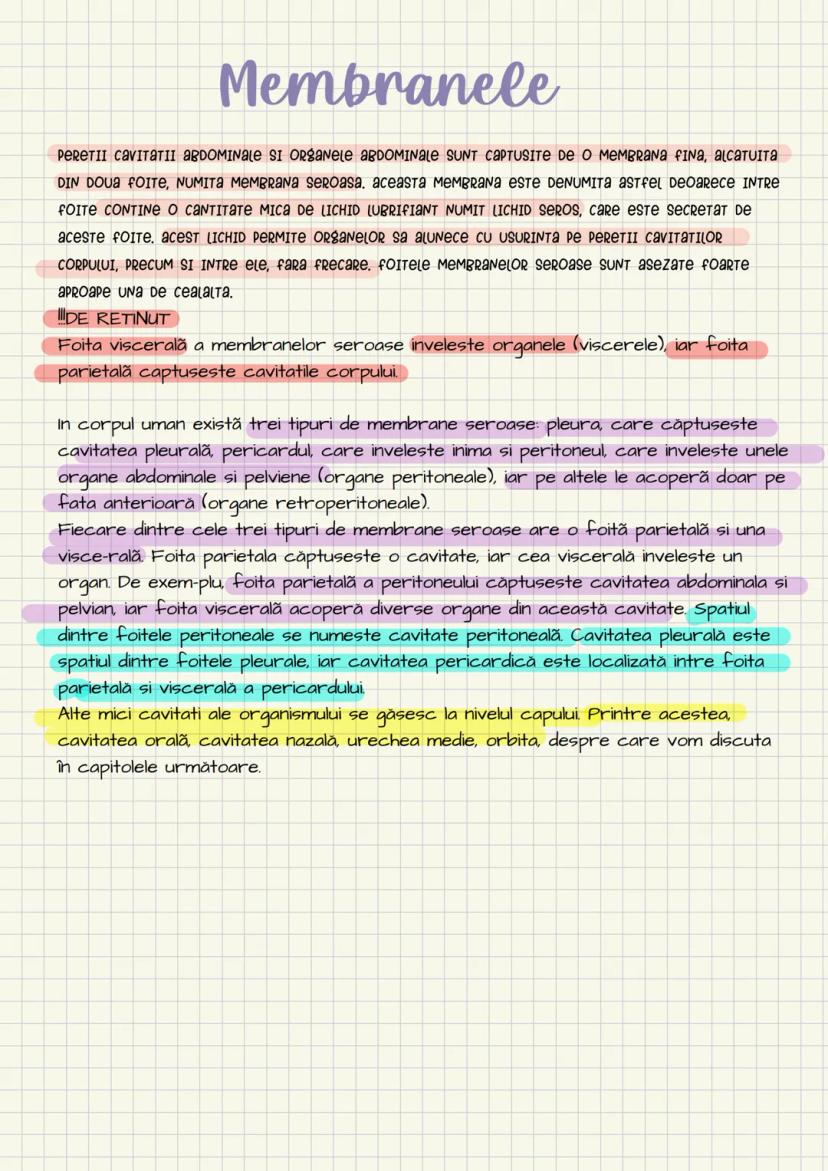 Membranele
PERETII CAVITATII ABDOMINALE SI ORGANELE ABDOMINALE SUNT CAPTUSITE DE O MEMBRANA FINA, ALCATUITA
DIN DOUA FOITE, NUMITA MEMBRANA SEROASA. ACEASTA MEMBRANA ESTE DENUMITA ASTFEL DEOARECE INTRE
FOITE CONTINE O CANTITATE MICA DE LICHID LUBRIFIANT NUMIT LICHID SEROS, CARE ESTE SECRETAT DE
ACESTE FOITE. ACEST LICHID PERMITE ORGANELOR SA ALUNECE CU USURINTA PE PERETII CAVITATILOR
CORPULUI, PRECUM SI INTRE ELE, FARA FRECARE. FOITELE MEMBRANELOR SEROASE SUNT ASEZATE FOARTE
APROAPE UNA DE CEALALTA.
!!!DE RETINUT
Foita viscerală a membranelor seroase inveleste organele (viscerele), iar foita
parietală captuseste cavitatile corpului.
In corpul uman există trei tipuri de membrane seroase: pleura, care căptuseste
cavitatea pleurală, pericardul, care inveleste inima si peritoneul, care inveleste unele
organe abdominale si pelviene (organe peritoneale), iar pe altele le acoperă doar pe
fata anterioară (organe retroperitoneale).
Fiecare dintre cele trei tipuri de membrane seroase are o foită parietală si una
visce-rală. Foita parietala căptuseste o cavitate, iar cea viscerală inveleste un
organ. De exem-plu, foita parietală a peritoneului căptuseste cavitatea abdominala si
pelvian, iar foita viscerală acoperă diverse organe din această cavitate. Spatiul
dintre foitele peritoneale se numeste cavitate peritoneală. Cavitatea pleurală este
spatiul dintre foitele pleurale, iar cavitatea pericardică este localizată intre foita
parietală si viscerală a pericardului.
Alte mici cavitati ale organismului se găsesc la nivelul capului. Printre acestea,
cavitatea orală, cavitatea nazală, urechea medie, orbita, despre care vom discuta
în capitolele următoare.